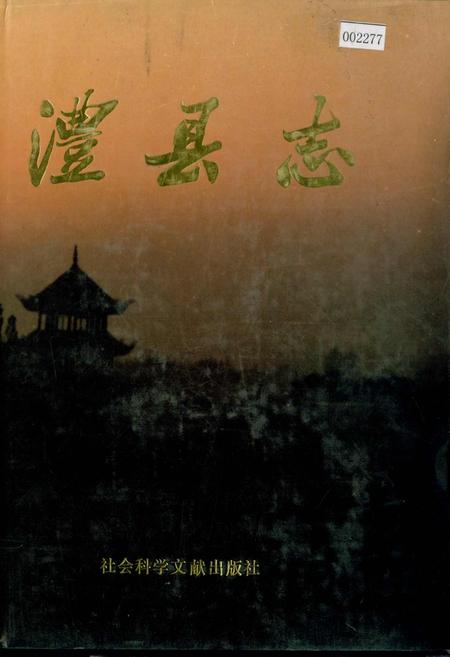 002277
澧县志
社会科学文献出版社